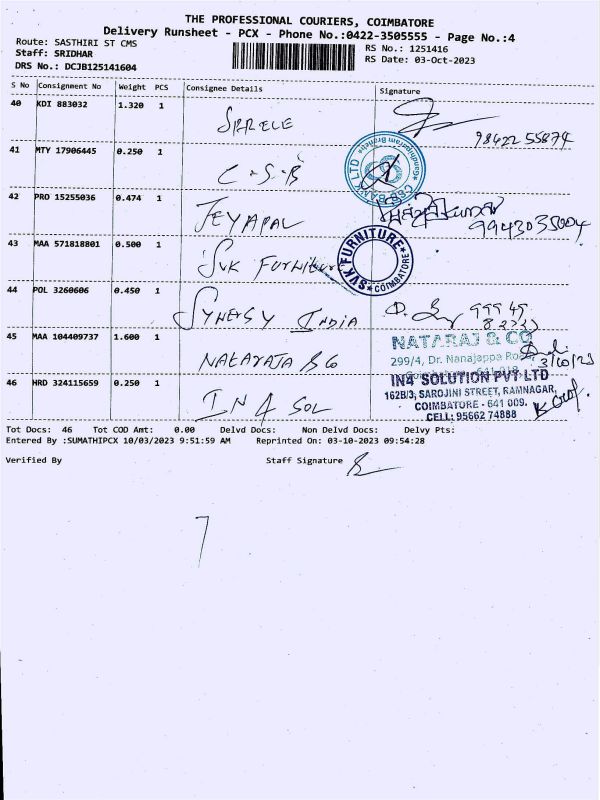 THE PROFESSIONAL COURIERS, COIMBATORE
Delivery Runsheet - PCX - Phone No.:0422-3505555 - Page No.:4
Route: SASTHIRI ST CMS
RS No.: 1251416
Staff: SRIDHAR
RS Date: 03-Oct-2023
DRS No.: DCJB125141604
S No Consignment No Weight PCS Consignee Details Signature
40 KDI 883032 1.320 1
98422 55874
41 MTY 17906445 0.250 1 C-S-B
42 PRO 15255036 0.474 1 JEYAPAL
9943035004
43 MAA 571818801 0.500 1 SVK FURNITURE
SVK FURNITURE
★ COIMBATORE ★
44 POL 3260606 0.450 1 SYNERGY INDIA
45 MAA 104409737 1.600 1 NATARAJA & CO
NATARAJ & CO
299/4, Dr. Nanajappa Road,
3/10/23
46 HRD 324115659 0.250 1 IN 4 SOL
IN4 SOLUTION PVT LTD
162B/3, SAROJINI STREET, RAMNAGAR,
COIMBATORE - 641 009.
CELL: 95662 74888
Tot Docs: 46 Tot COD Amt: 0.00 Delvd Docs: Non Delvd Docs: Delvy Pts:
Entered By :SUMATHIPCX 10/03/2023 9:51:59 AM Reprinted On: 03-10-2023 09:54:28
Verified By Staff Signature